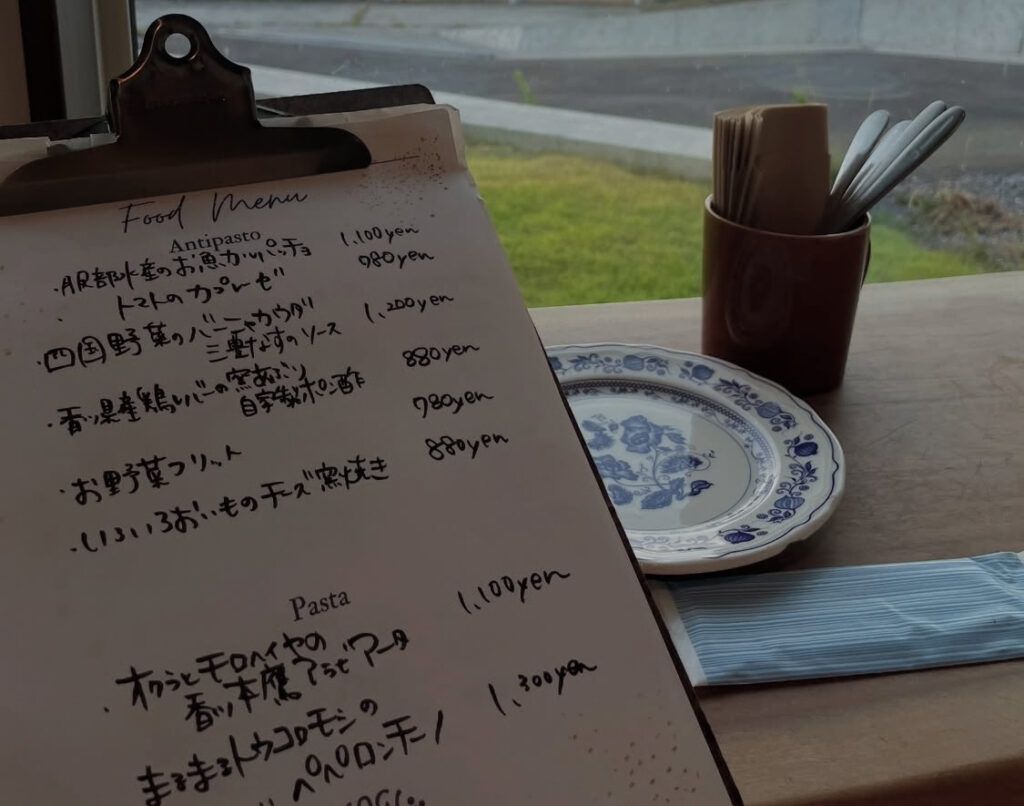 Food Menu
Antipasto
・服部水産のお魚カルパッチョ 1,100yen
・トマトのカプレーゼ 980yen
・四国野菜のバーニャカウダ 1,200yen
三豊なすのソース
・香川県産鶏レバーの窯あぶり 880yen
自家製ポン酢
・お野菜フリット 780yen
・いろいろおいものチーズ窯焼き 880yen
Pasta
・オクラとモロヘイヤの 1,100yen
香川本鷹アラビアータ
まるまるトウモロコシの 1,300yen
ペペロンチーノ